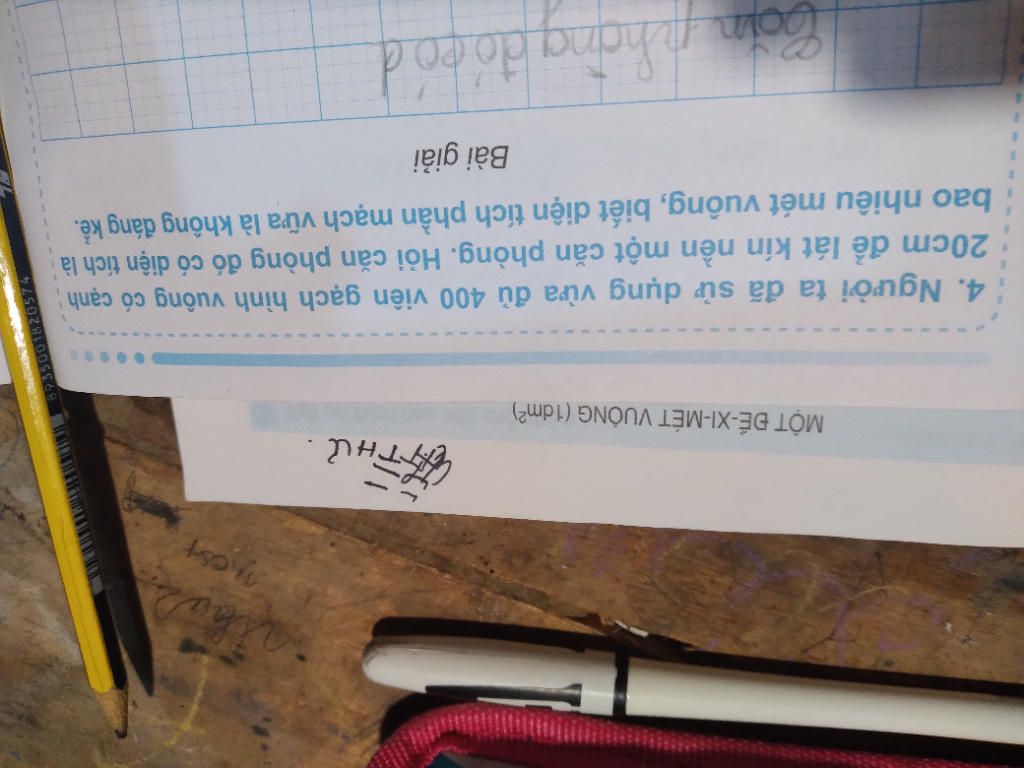 MỘT ĐỀ-XI-MÉT VUÔNG (1dm²)
4. Người ta đã sử dụng vừa đủ 400 viên gạch hình vuông có cạnh
20cm để lát kín nền một căn phòng. Hỏi căn phòng đó có diện tích là
bao nhiêu mét vuông, biết diện tích phần mạch vữa là không đáng kể.
Bài giải
Căn phòng đó có d
8935001820574